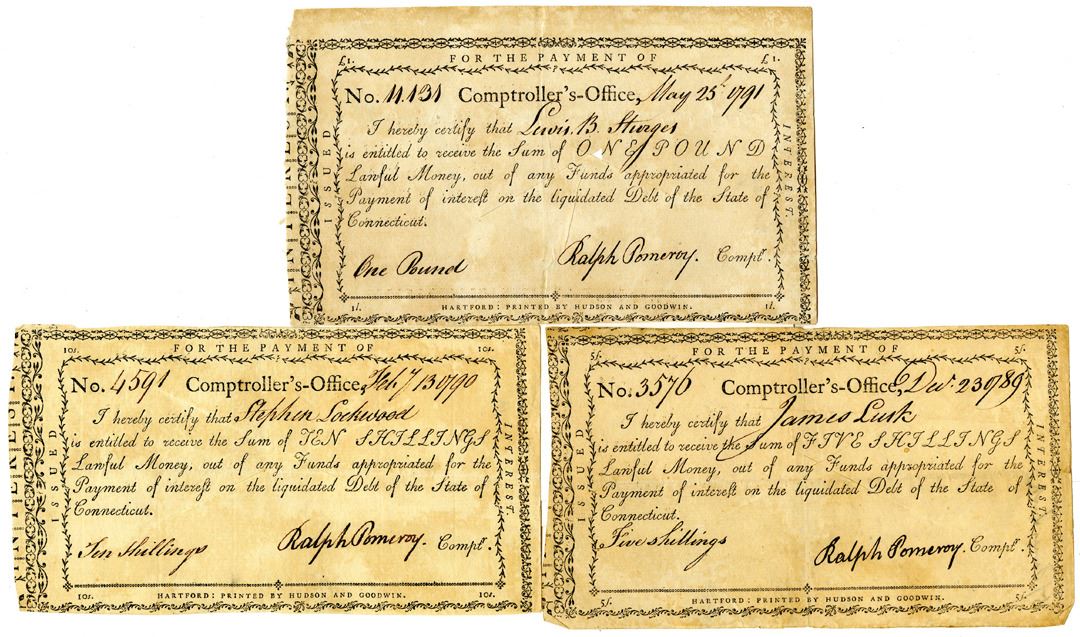 £1. FOR THE PAYMENT OF £1.
No. 11.131 Comptroller's-Office, May 25t 1791
I hereby certify that Lewis. B. Sturges
is entitled to receive the Sum of ONE POUND
Lawful Money, out of any Funds appropriated for the
Payment of interest on the liquidated Debt of the State of
Connecticut.
One Pound Ralph Pomeroy. Comptr.
1l. HARTFORD: PRINTED BY HUDSON AND GOODWIN. 1l.
ISSUED
INTEREST.
10s. FOR THE PAYMENT OF 10s.
No. 4591 Comptroller's-Office, Feby 13 1790
I hereby certify that Stephen Lockwood
is entitled to receive the Sum of TEN SHILLINGS
Lawful Money, out of any Funds appropriated for the
Payment of interest on the liquidated Debt of the State of
Connecticut.
Ten shillings Ralph Pomeroy. Comptr.
10s. HARTFORD: PRINTED BY HUDSON AND GOODWIN. 10s.
ISSUED
INTEREST.
5s. FOR THE PAYMENT OF 5s.
No. 3576 Comptroller's-Office, Decr. 23 1789
I hereby certify that James Lusk
is entitled to receive the Sum of FIVE SHILLINGS
Lawful Money, out of any Funds appropriated for the
Payment of interest on the liquidated Debt of the State of
Connecticut.
Five shillings Ralph Pomeroy. Comptr.
5s. HARTFORD: PRINTED BY HUDSON AND GOODWIN. 5s.
ISSUED
INTEREST.